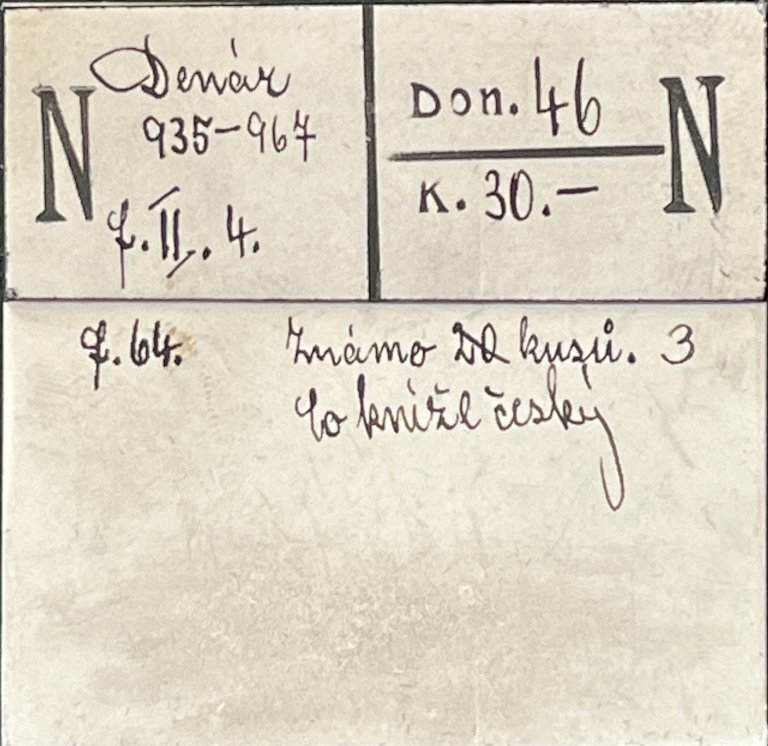 N Denár
935-967
f. II. 4.
Don. 46 N
K. 30.-
f. 64. Známo kusů. 3
Co kníže český